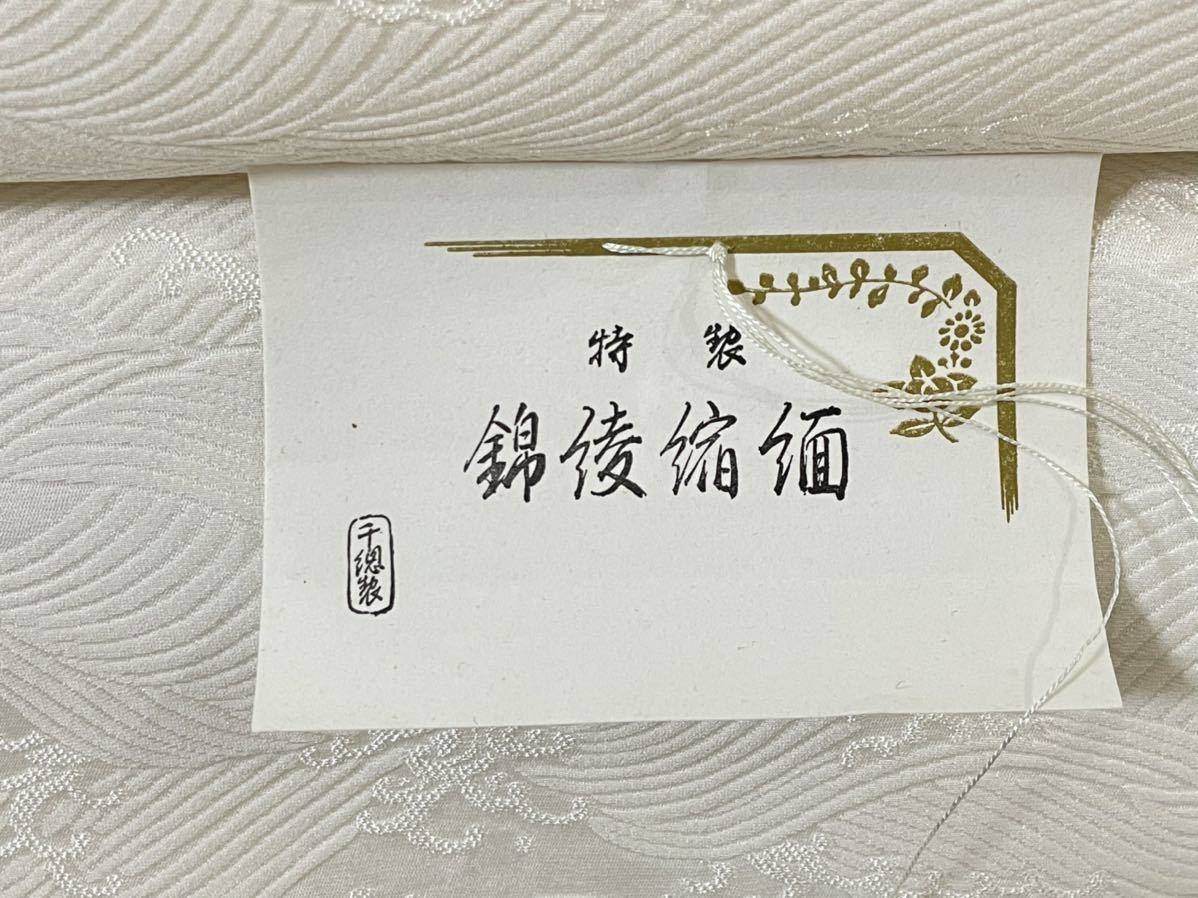 特製
錦綾縮緬
千總製